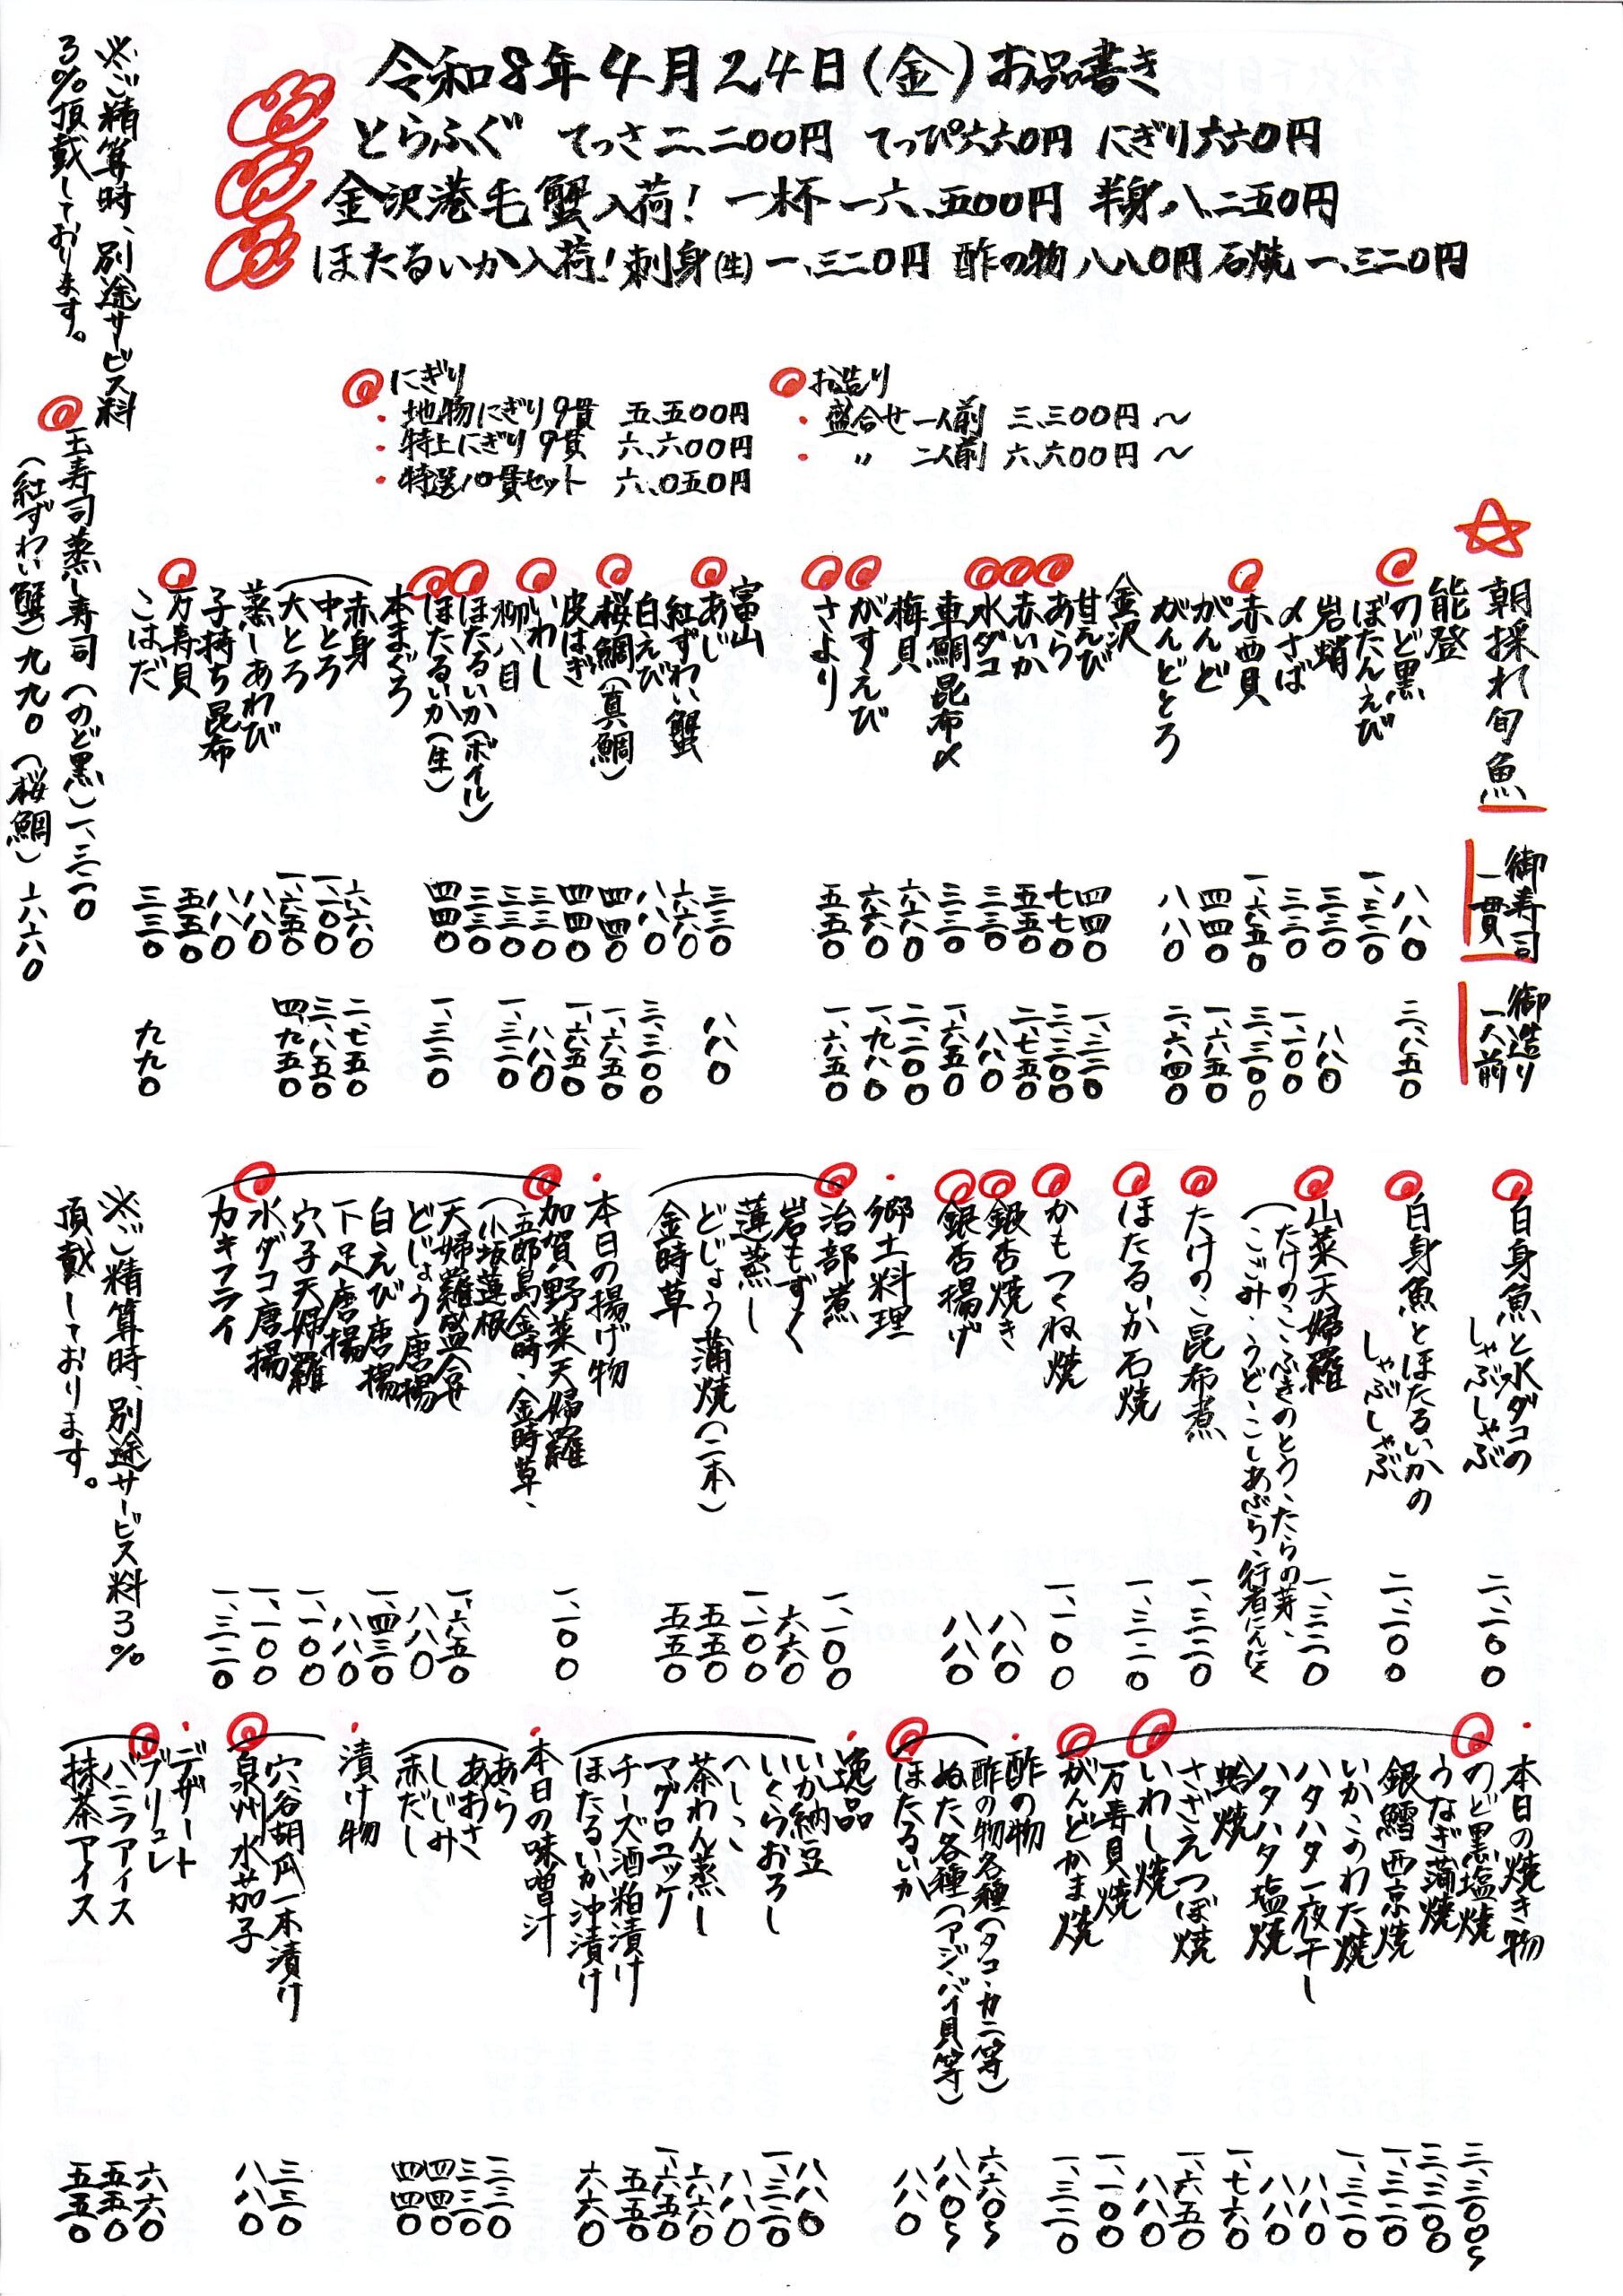 令和8年4月24日(金)お品書き
とらふぐ てっさ二、二00円 てっぴ六六0円 にぎり六六0円
金沢港毛蟹入荷! 一杯一六、五00円 半身八、二五0円
ほたるいか入荷!刺身(生)一、三二0円 酢の物八八0円 石焼一、三二0円
にぎり
・地物にぎり9貫 五、五00円
・特上にぎり9貫 六、六00円
・特選10貫セット 六、0五0円
お造り
・盛合せ一人前 三、三00円〜
・〃 二人前 六、六00円〜
☆朝採れ旬魚 御寿司一貫 御造り一人前
能登
のど黒 八八0 三、八五0
ぼたんえび 一、三二0
岩蛸 三三0 八八0
〆さば 三三0 一、一00
赤西貝 一、六五0 三、三00
がんど 四四0 一、六五0
がんどとろ 八八0 二、六四0
金沢
甘えび 四四0 一、三二0
あら 七七0 三、三00
赤いか 五五0 二、七五0
水ダコ 三三0 八八0
車鯛昆布〆 三三0 一、六五0
梅貝 六六0 二、二00
がすえび 六六0 一、九八0
さより 五五0 一、六五0
富山
あじ 三三0 八八0
紅ずわい蟹 六六0
白えび 八八0 三、三00
桜鯛(真鯛) 四四0 一、六五0
皮はぎ 四四0 一、六五0
いわし 三三0 八八0
柳八目 三三0 一、三二0
ほたるいか(ボイル) 三三0
ほたるいか(生) 四四0 一、三二0
本まぐろ
赤身 六六0 二、七五0
中とろ 一、一00 三、八五0
大とろ 一、六五0 四、九五0
蒸しあわび 八八0
子持ち昆布 八八0
万寿貝 五五0
こはだ 三三0 九九0
※ご精算時、別途サービス料
3%頂戴しております。
玉寿司蒸し寿司(のど黒)一、三二0
(紅ずわい蟹)九九0(桜鯛)六六0
白身魚と水ダコの
しゃぶしゃぶ 二、二00
白身魚とほたるいかの
しゃぶしゃぶ 二、二00
山菜天婦羅 一、三二0
(たけのこ、ふきのとう、たらの芽、
こごみ、うど、こしあぶら、行者にんにく
たけのこ昆布煮 一、三二0
ほたるいか石焼 一、三二0
かもつくね焼 一、一00
銀杏焼き 八八0
銀杏揚げ 八八0
・郷土料理
治部煮 一、一00
岩もずく 六六0
蓮蒸し 一、一00
どじょう蒲焼(二本) 五五0
金時草 五五0
・本日の揚げ物
加賀野菜天婦羅 一、一00
(五郎島金時、金時草、
小坂蓮根
天婦羅盛合せ 一、六五0
どじょう唐揚 八八0
白えび唐揚 一、四三0
下足唐揚 八八0
穴子天婦羅 一、一00
水ダコ唐揚 一、一00
カキフライ 一、三二0
※ご精算時、別途サービス料3%
頂戴しております。
・本日の焼き物
のど黒塩焼 三、三00〜
うなぎ蒲焼 三、三00
銀鱈西京焼 一、三二0
いかこのわた焼 一、三二0
ハタハタ一夜干し 八八0
ハタハタ塩焼 八八0
蛤焼 一、七六0
さざえつぼ焼 一、六五0
いわし焼 八八0
万寿貝焼 一、一00
がんどかま焼 一、三二0
・酢の物
酢の物各種(タコ・カニ等) 六六0〜
ぬた各種(アジ・バイ貝等) 八八0〜
ほたるいか 八八0
・逸品
いか納豆 八八0
いくらおろし 一、三二0
へしこ 八八0
茶わん蒸し 六六0
マグロユッケ 一、六五0
チーズ酒粕漬け 五五0
ほたるいか沖漬け 六六0
・本日の味噌汁
あら 三三0
あおさ 三三0
しじみ 四四0
赤だし 四四0
・漬け物
穴谷胡瓜一本漬け 三三0
泉州水茄子 八八0
・デザート
ブリュレ 六六0
バニラアイス 五五0
抹茶アイス 五五0